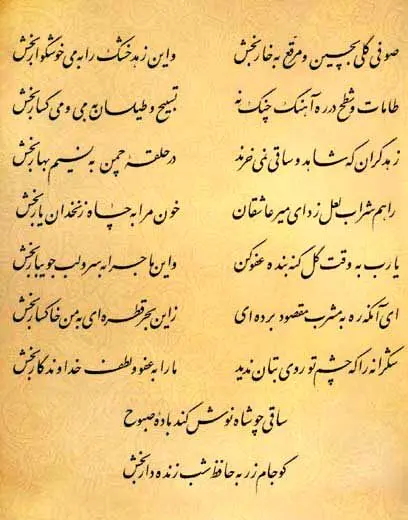 صوفی گلی بچین و مرقع به خار بخش واین زهد خشک را به می خوشگوار بخش
طامات و شطح در ره آهنگ چنگ نه تسبیح و طیلسان به می و می گسار بخش
زهد گران که شاهد و ساقی نمی خرند در حلقه چمن به نسیم بهار بخش
راهم شراب لعل زد ای میر عاشقان خون مرا به چاه زنخدان یار بخش
یارب به وقت گل گنه بنده عفو کن واین ماجرا به سرو لب جویبار بخش
ای آنکه ره به مشرب مقصود برده ای زاین بحر قطره ای به من خاکسار بخش
شکرانه را که چشم تو روی بتان ندید ما را به عفو و لطف خداوندگار بخش
ساقی چو شاه نوش کند باده صبوح
گو جام زر به حافظ شب زنده دار بخش